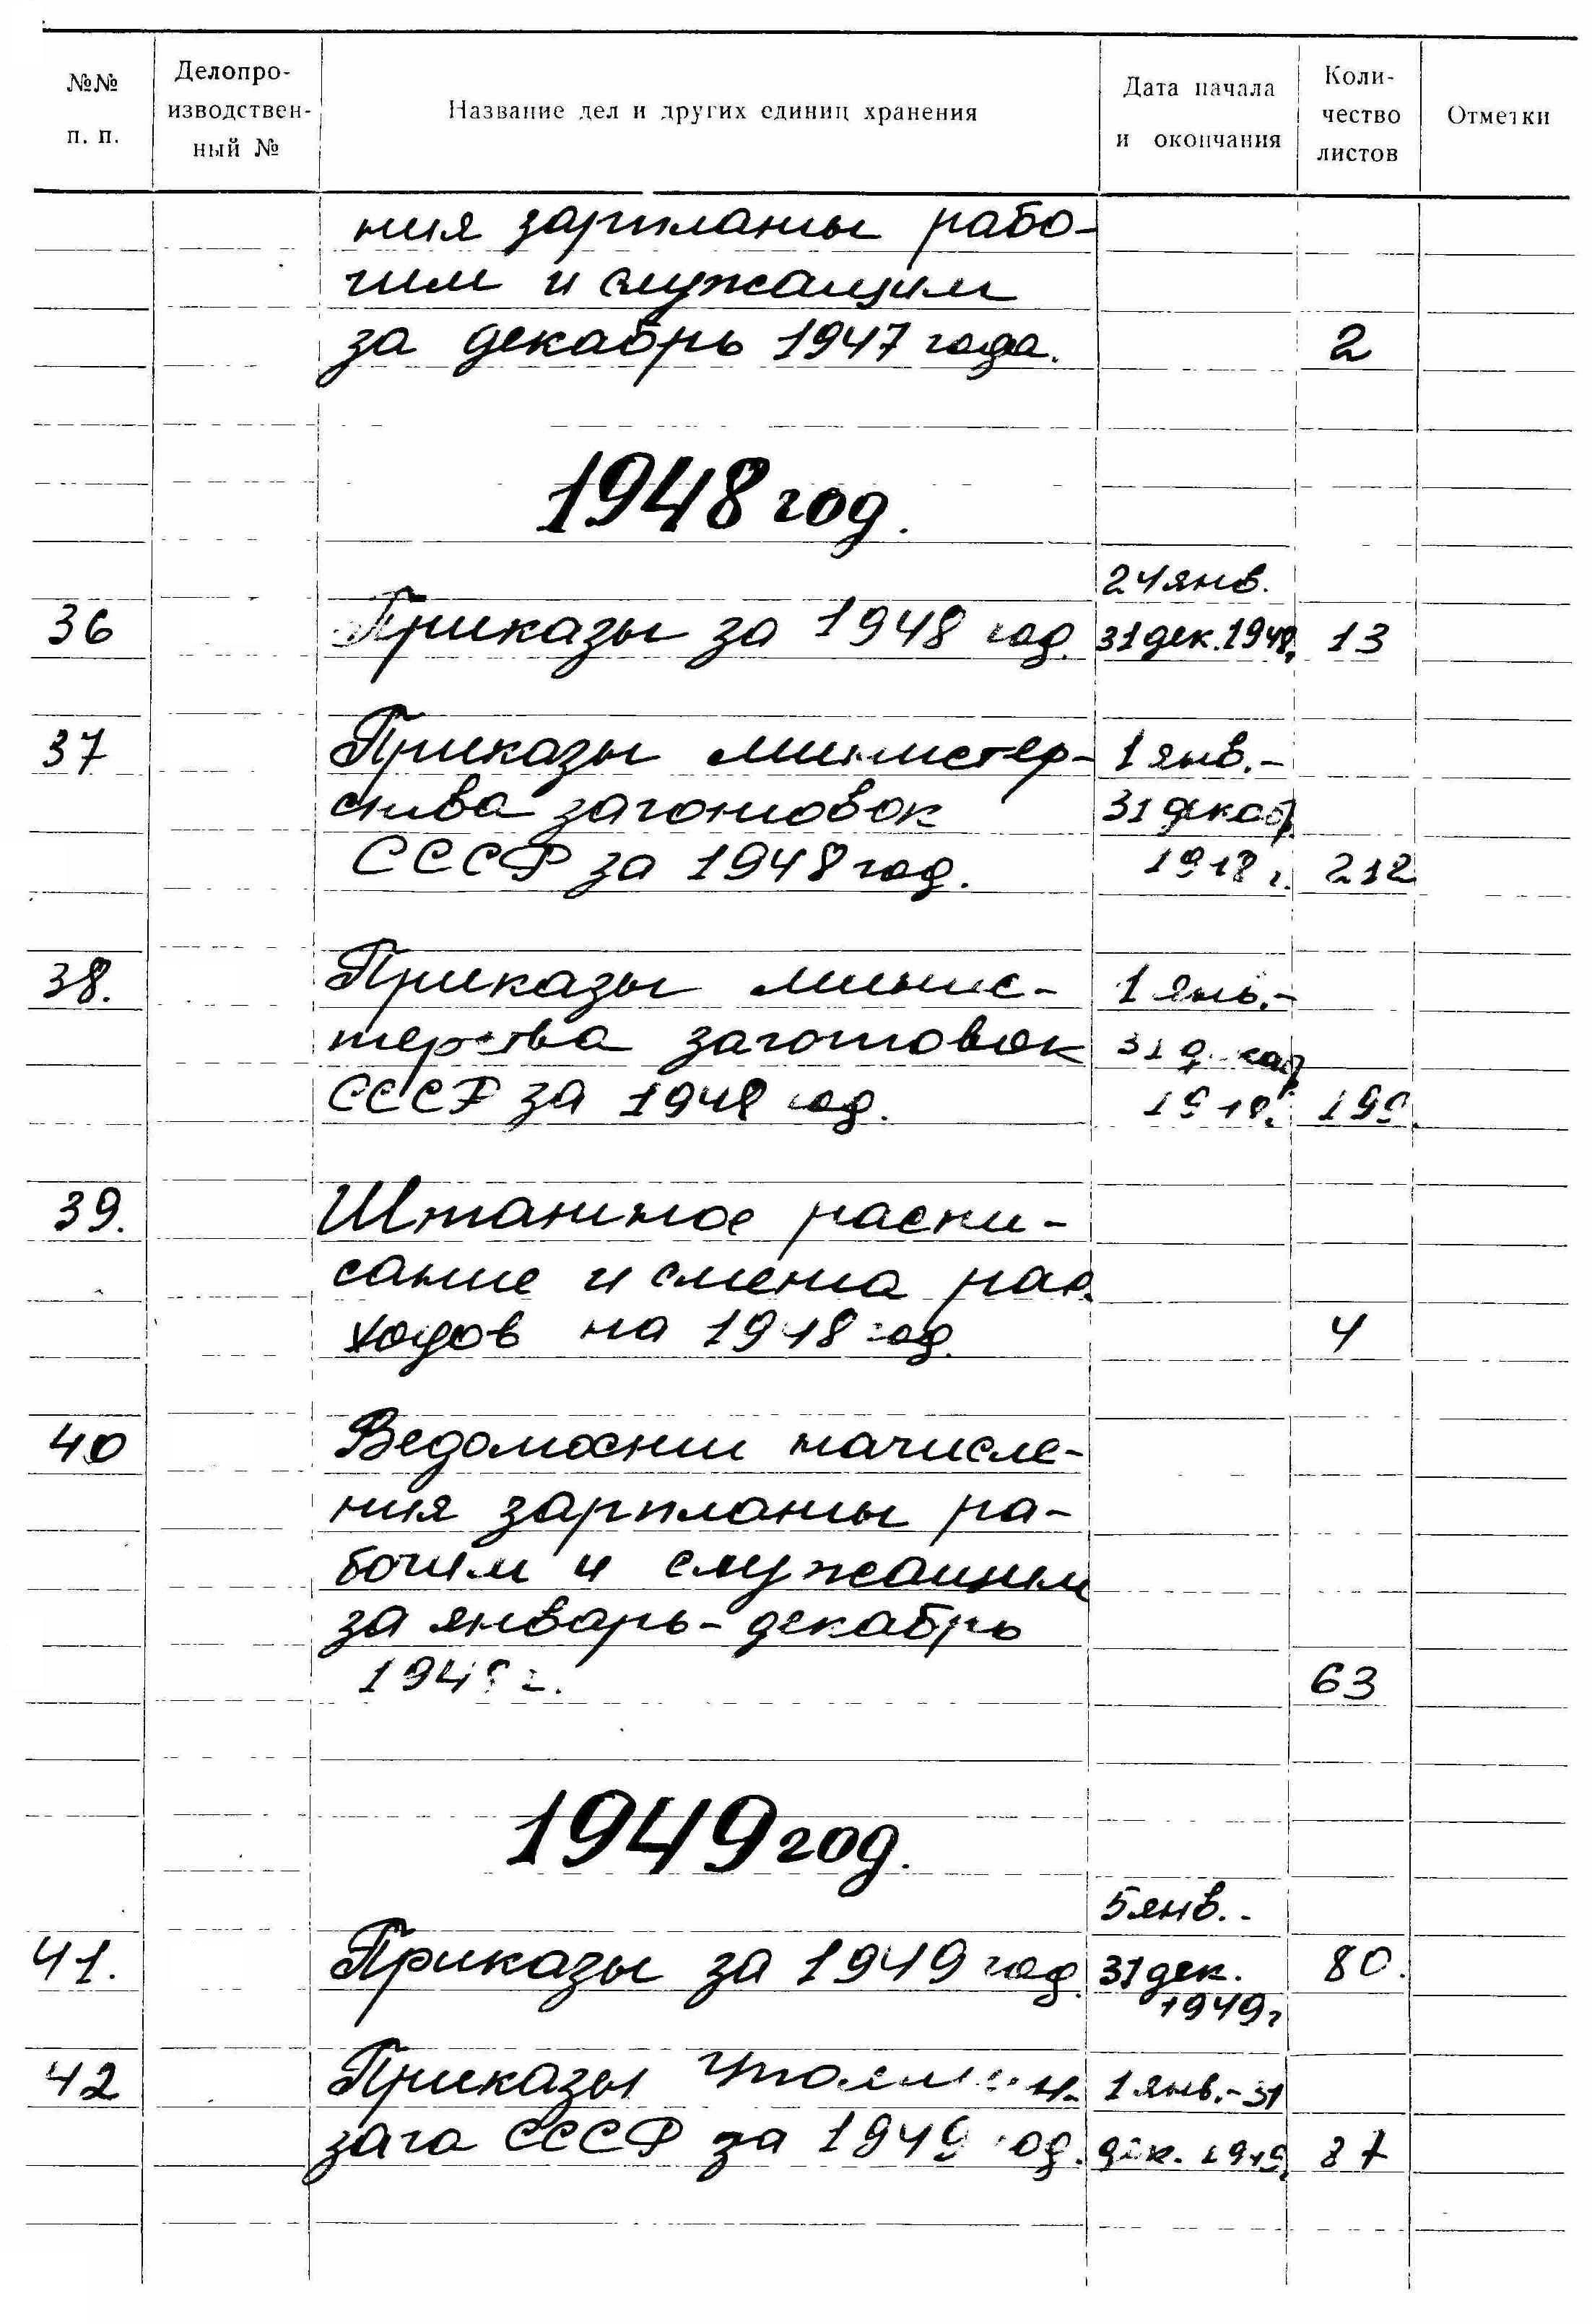 №№ п. п.
Делопро-
изводствен-
ный №
Название дел и других единиц хранения
Дата начала
и окончания
Коли-
чество
листов
Отметки
ния зарплаты рабо-
чим и служащим
за декабрь 1947 года. 2
1948 год.
24 янв.
36 Приказы за 1948 год. 31 дек. 1948. 13
37 Приказы министер- 1 янв.-
ства заготовок 31 декаб
СССР за 1948 год. 1948 г. 212
38. Приказы минис- 1 янв.-
терства заготовок 31 декаб
СССР за 1948 год. 1948.
39. Штатное распи-
сание и смета рас
ходов на 1948 год. 4
40 Ведомости начисле-
ния зарплаты ра-
бочим и служащим
за январь - декабрь
1948 г. 63
1949 год.
5 янв. -
41. Приказы за 1949 год. 31 дек. 80.
1949 г
42 Приказы 1 янв.-31
зага СССР за 1949 год. дек. 1949. 87